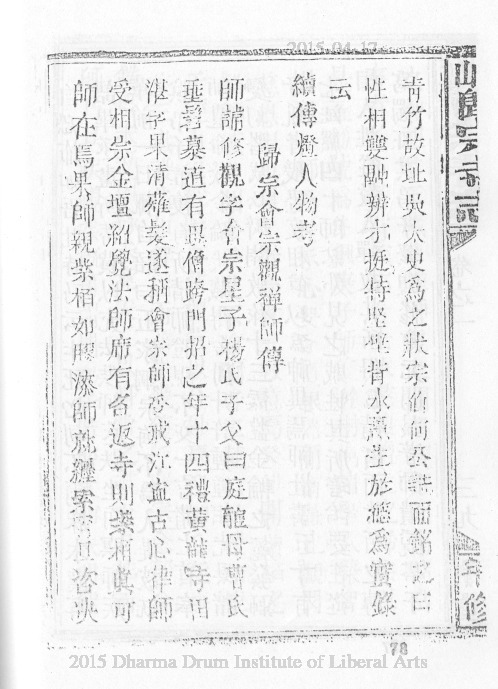 2015.04.17
青竹故址吳太史為之狀宗伯何公誌而銘之曰
性相雙融辨才挺特堅壁背水熏蒸於德為實錄
云
續傳燈人物考
歸宗會宗觀禪師傳
師諱修觀字會宗星子楊氏子父曰庭龍母曹氏
垂髫慕道有異僧跨門招之年十四禮黃龍寺田
湛字果清薙髮遂稱會宗師受戒江寧古心律師
受相宗金壇紹覺法師席有名返寺則紫柏真可
師在焉果師親紫柏如膠漆師就纏索密且咨決
78
2015 Dharma Drum Institute of Liberal Arts